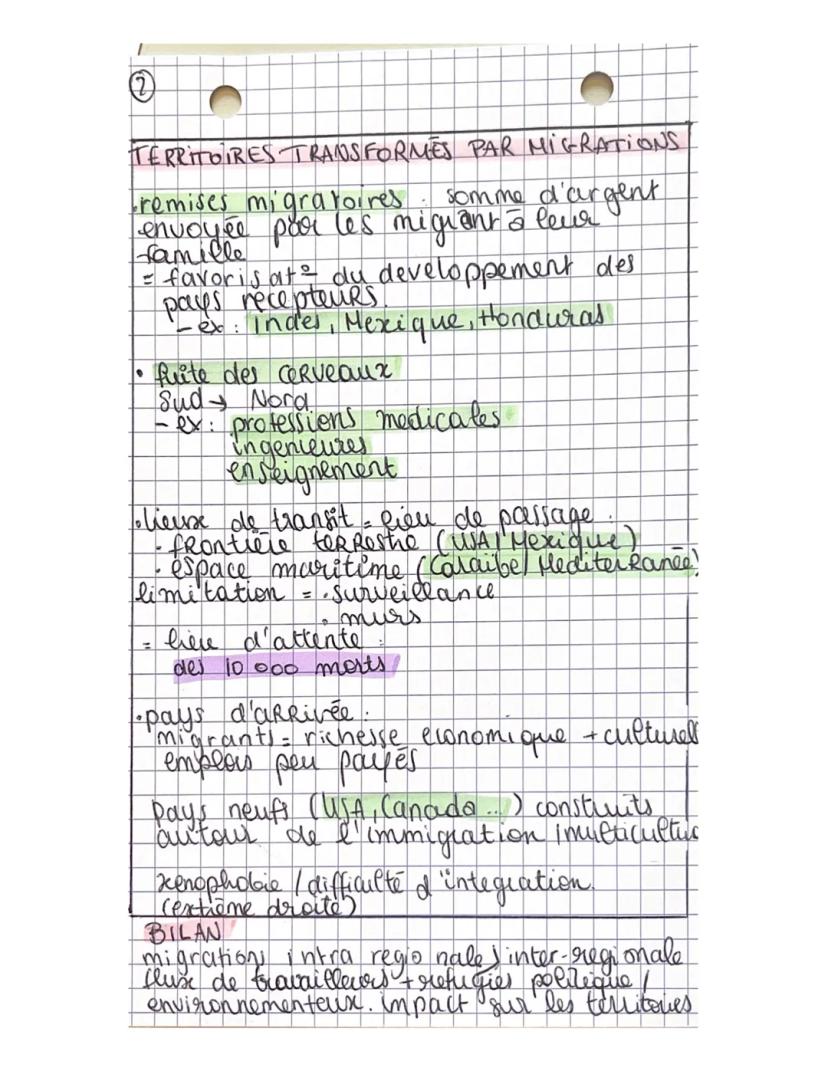 2
TERRITOIRES TRANSFORMÉS PAR MIGRATIONS
• remises migratoires : somme d'argent
envoyée par les migrant à leur
famille
= favorisat° du developpement des
pays recepteurs.
- ex : Indes, Mexique, Honduras
• fuite des cerveaux
Sud → Nord
- ex : professions medicales
ingenieures
enseignement
• lieux de transit = lieu de passage :
• frontière terrestre (USA/Mexique)
• espace maritime (Caraïbe/Mediterranée)
limitation = • surveillance
• murs
= lieu d'attente :
des 10 000 morts
• pays d'arrivée :
migrants = richesse economique + culturell
emplois peu payés
pays neufs (USA, Canada ...) construits
autour de l'immigration /multicultu
xenophobie / difficulté d'integration.
(extrême droite)
BILAN
migrations intra regionale / inter-regionale
flux de travailleurs + refugies politique /
environnementeux. impact sur les territoires